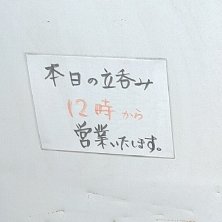 本日の立呑み
12時から
営業いたします。